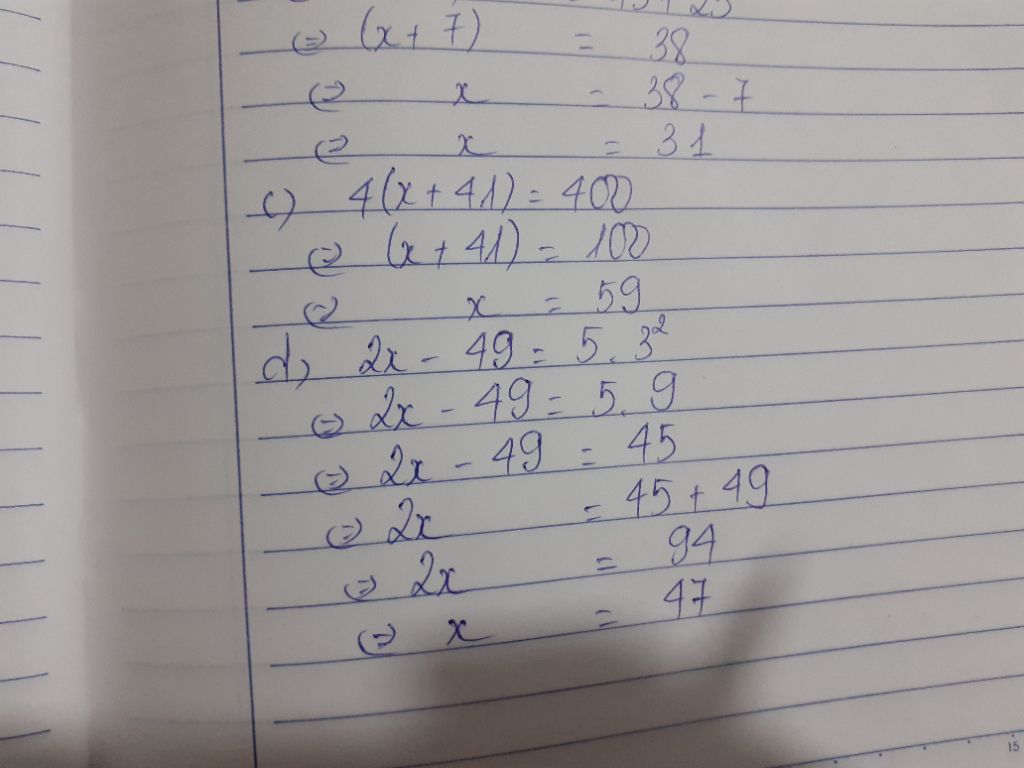 ⇔ (x + 7) = 38
⇔ x = 38 - 7
⇔ x = 31
c) 4(x + 41) = 400
⇔ (x + 41) = 100
⇔ x = 59
d) 2x - 49 = 5 . 3²
⇔ 2x - 49 = 5 . 9
⇔ 2x - 49 = 45
⇔ 2x = 45 + 49
⇔ 2x = 94
⇔ x = 47
15